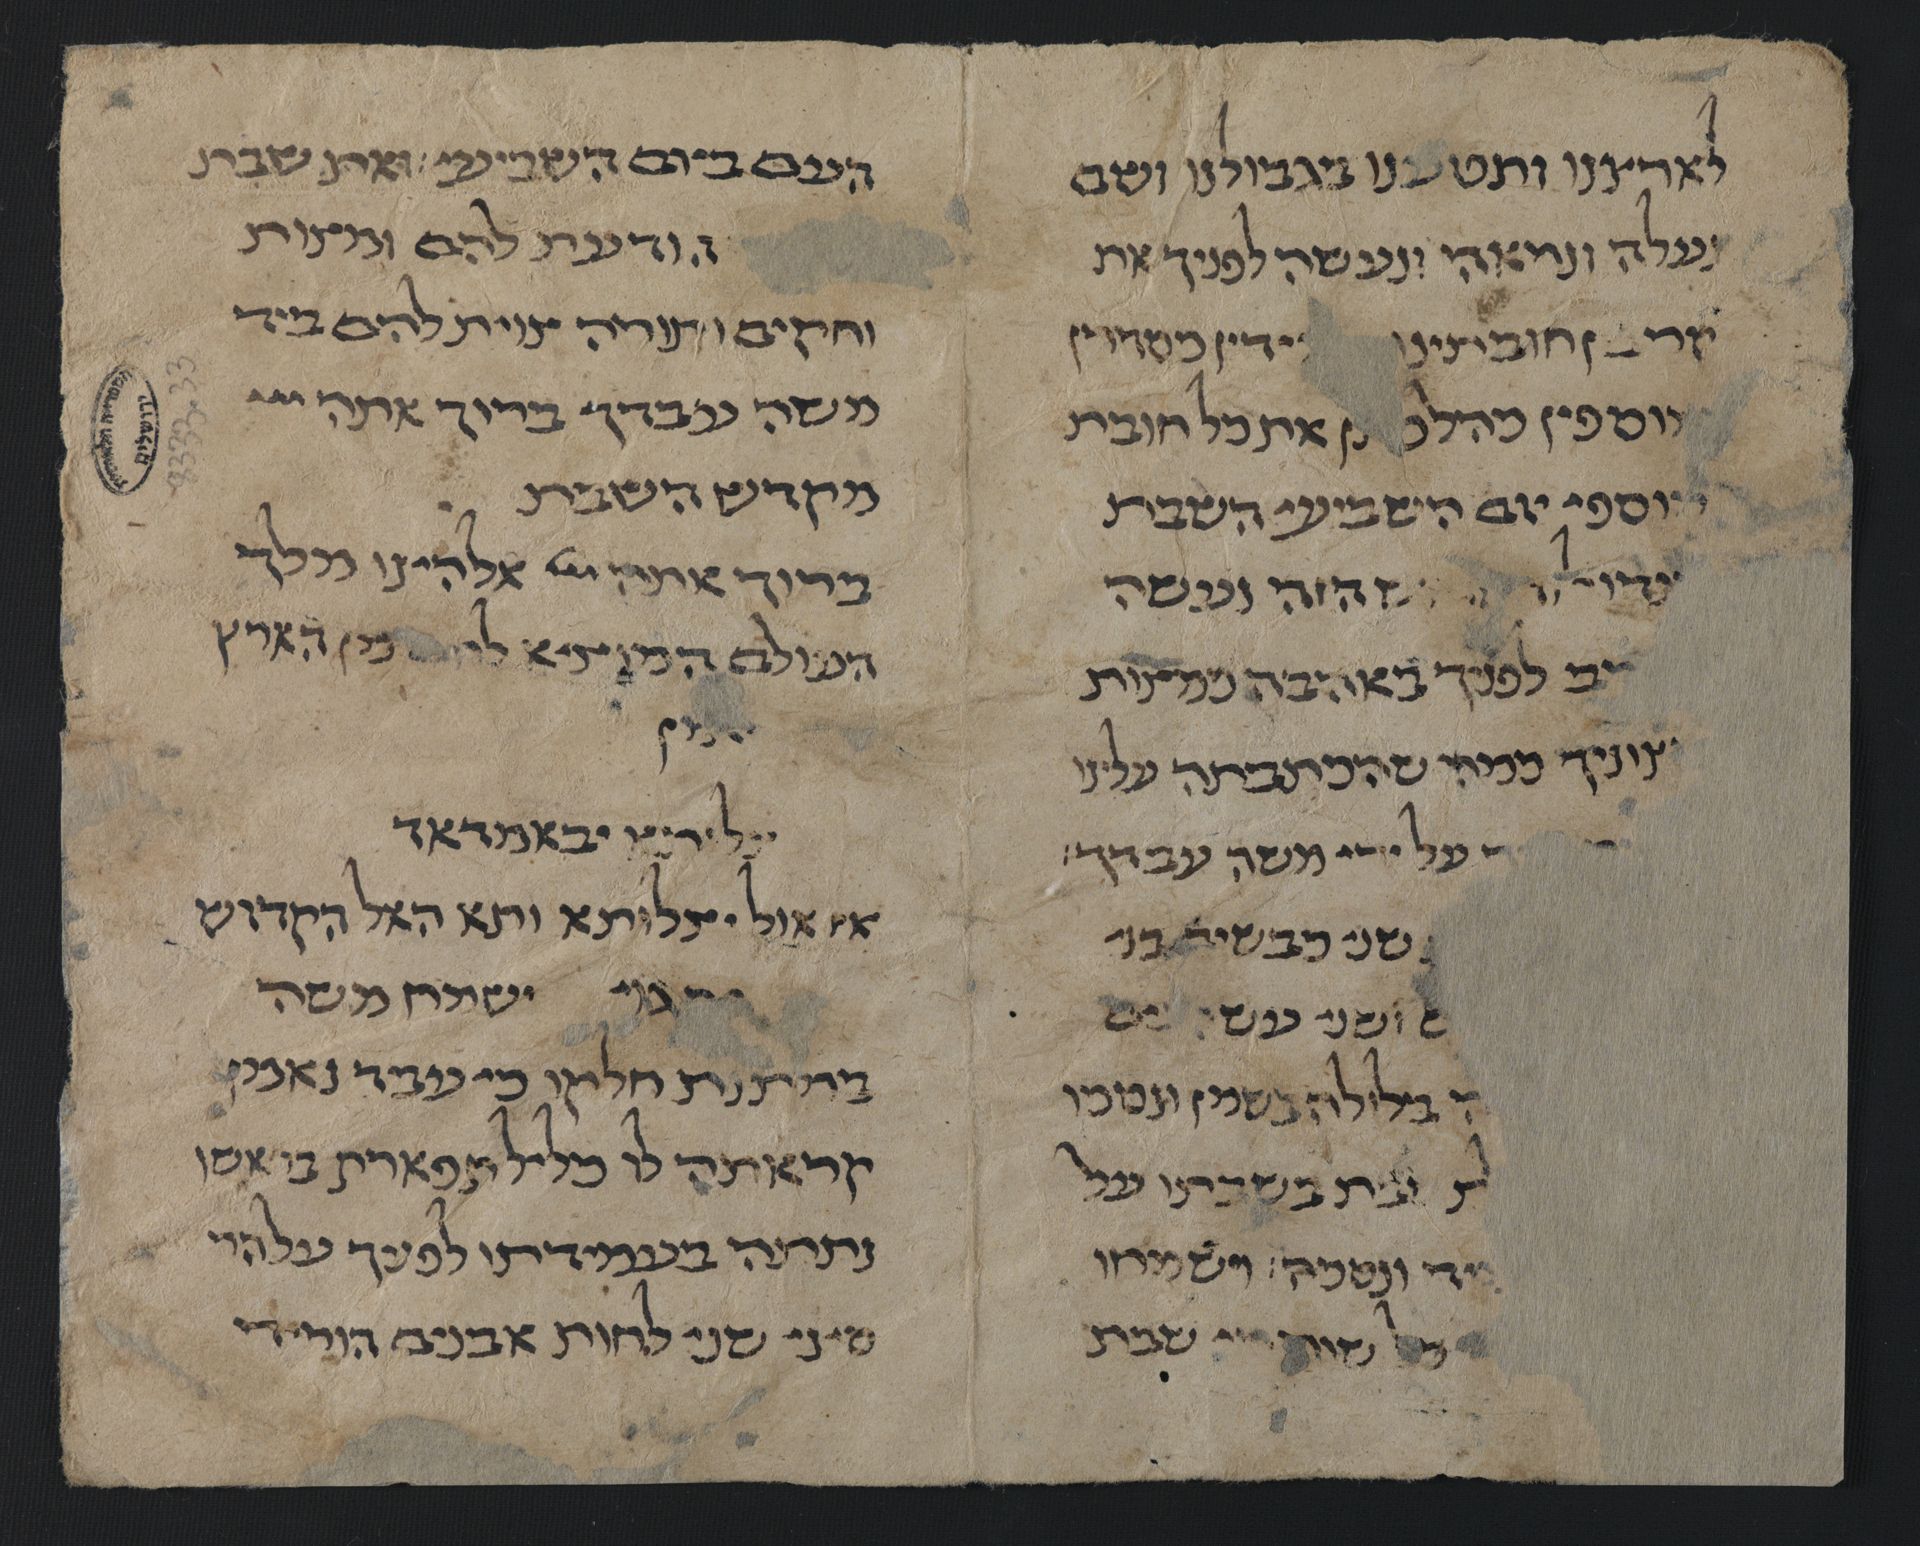 לארצנו ותטענו בגבולנו ושם
נעלה ונראה ונעשה לפניך את
חובתינו כסדרן
מוספין כהלכתן את כל חובת
מוספי יום השביעי השבת
הזה נעשה
לפניך באהבה כמצות
רצוניך כמה שהכתבתה עלינו
על ידי משה עבדך
שני כבשים בני
ושני
בלולה בשמן ונסכו
שבת בשבתו על
ונסכה ישמחו
כל שומרי שבת
העם ביום השביעי ואת שבת
הודעת להם ומצות
וחקים ותורה צוית להם ביד
משה עבדך ברוך אתה ייי
מקדש השבת
ברוך אתה ייי אלהינו מלך
העולם המוציא לחם מן הארץ
אמן
יבאמדאד
אז אול יצלותא ותא האל הקדוש
ישמח משה
במתנת חלקו כי עבד נאמן
קראתה לו כליל תפארת בראשו
נתתה בעמדתו לפניך על הר
סיני שני לחות אבנים הוריד